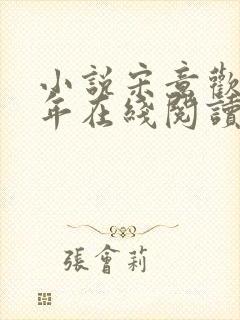 小說宋意歡
年在綫閱讀
張會莉